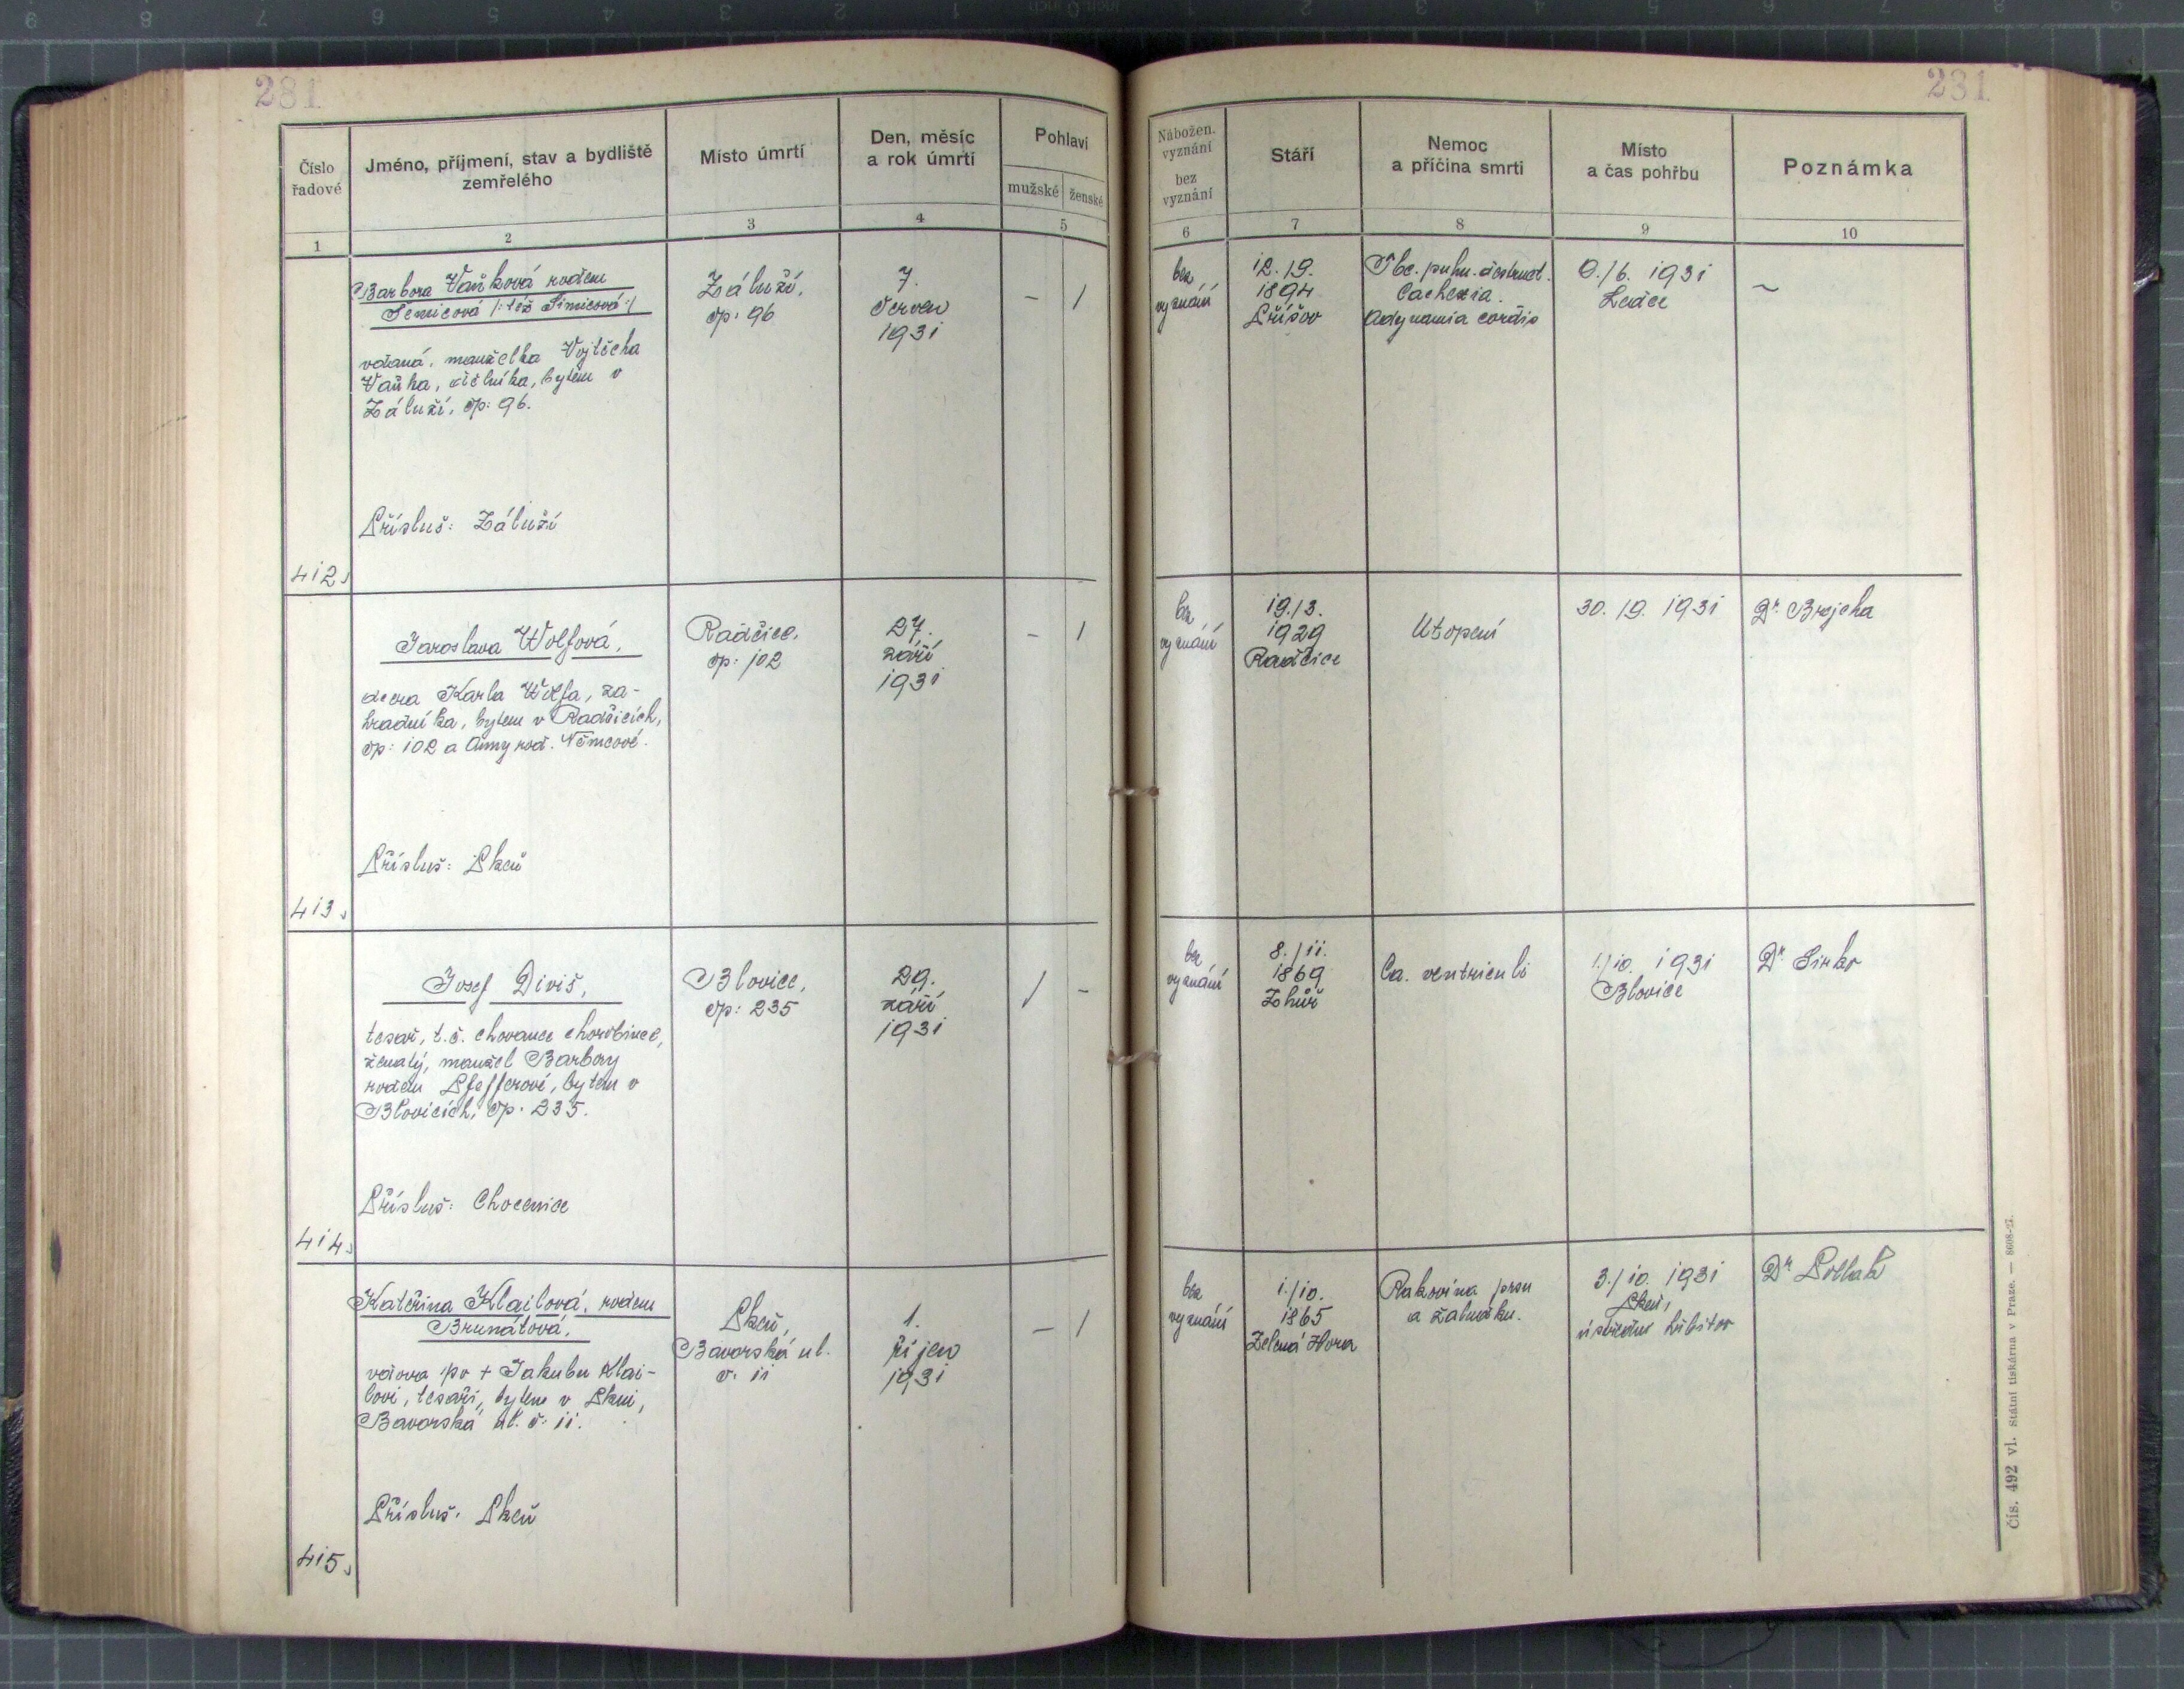 281
Číslo
řadové
Jméno, příjmení, stav a bydliště
zemřelého
Místo úmrtí
Den, měsíc
a rok úmrtí
Pohlaví
mužské ženské
1 2 3 4 5
Barbora Vaňková rodem
Šemicová /: též Šimicová :/
vdaná, manželka Vojtěcha
Vaňka, dělníka, bytem v
Záluží, čp: 96.
Přísluš: Záluží
412
Záluží,
čp: 96
7.
červen
1931
– 1
Jaroslava Wolfová,
dcera Karla Wolfa, za-
hradníka, bytem v Radčicích,
čp: 102 a Anny rod. Němcové.
Přísluš: Plzeň
413
Radčice,
čp: 102
27.
září
1931
– 1
Josef Diviš,
tesař, t.č. chovanec chorobince,
ženatý, manžel Barbory
rodem Pfefferové, bytem v
Blovicích, čp. 235.
Přísluš: Chocenice
414
Blovice,
čp: 235
29.
září
1931
1 -
Kateřina Klailová, rodem
Brunátová,
vdova po + Jakubu Klai-
lovi, tesaři, bytem v Plzni,
Bavorská ul. č: 11.
Přísluš. Plzeň
415
Plzeň,
Bavorská ul.
č. 11
1.
říjen
1931
– 1
231
Nábožen.
vyznání
bez
vyznání
Stáří
Nemoc
a příčina smrti
Místo
a čas pohřbu
Poznámka
6 7 8 9 10
bez
vyznání
12./9.
1894
Příšov
Tbc. pulm. destruct.
Cachexia.
Adynamia cordis
9./6. 1931
Ledce
~
bez
vyznání
19./3.
1929
Radčice
Utopení
30. /9. 1931
Dr. Brejcha
bez
vyznání
8./11.
1869
Zhůř
Ca. ventriculi
1./10. 1931
Blovice
Dr.
bez
vyznání
1./10.
1865
Zelená Hora
Rakovina prsu
a žaludku.
3./10. 1931
Plzeň,
ústřední hřbitov
Dr Pollak
Čís. 492 vl. Státní tiskárna v Praze. — 8608-27.